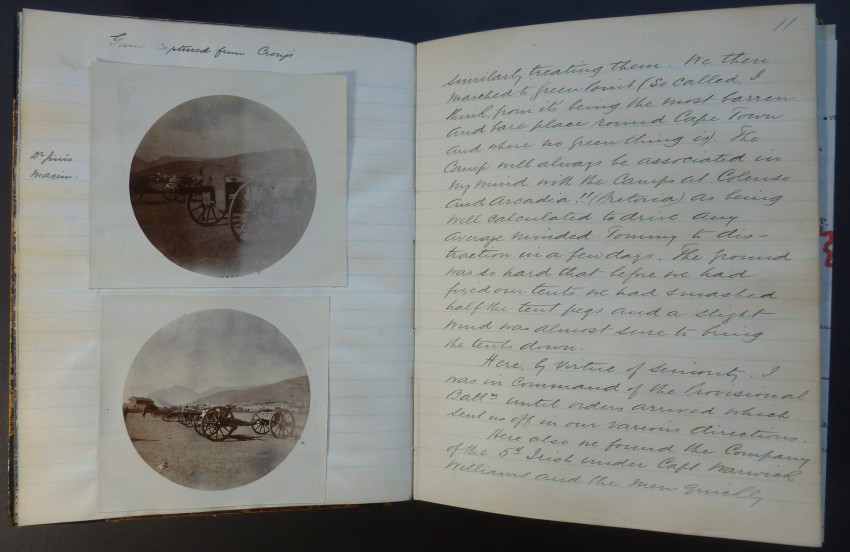 Guns captured from Cronje.
Maxim.
11
similarly treating them. We then
marched to green Point (So called, I
think, from it's being the most barren
and bare place round Cape Town
and where no green thing is). The
Camp will always be associated in
my mind with the Camps at Colenso
and Arcadia!! (Pretoria) as being
well calculated to drive any
average minded Tommy to dis-
traction in a few days. The ground
was so hard that before we had
fixed our tents we had smashed
half the tent pegs and a slight
wind was almost sure to bring
the tents down.
Here, by virtue of seniority, I
was in command of the Provisional
Batt:n until orders arrived which
sent us off in our various directions.
Here also we found the Company
of the 5th Irish under Capt. Warwick
Williams and the men quickly